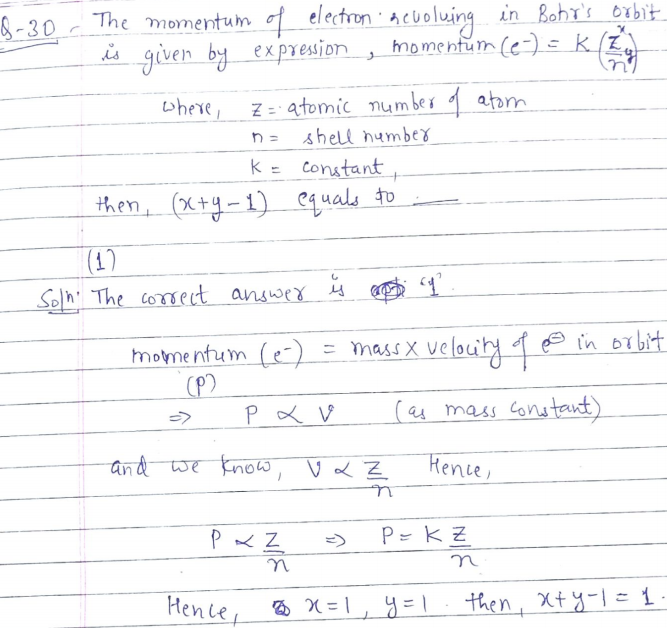 Q-30 - The momentum of electron revolving in Bohr's orbit
is given by expression, momentum (e⁻) = K (Zˣ/nʸ)
where, Z = atomic number of atom
n = shell number
K = constant,
then, (x+y-1) equals to ___
(1)
Solⁿ: The correct answer is '1'.
momentum (e⁻) = mass x velocity of e⊖ in orbit
(P)
⇒ P ∝ V (as mass constant)
and we know, V ∝ Z/n Hence,
P ∝ Z/n ⇒ P = K Z/n
Hence, x=1, y=1. then, x+y-1 = 1.